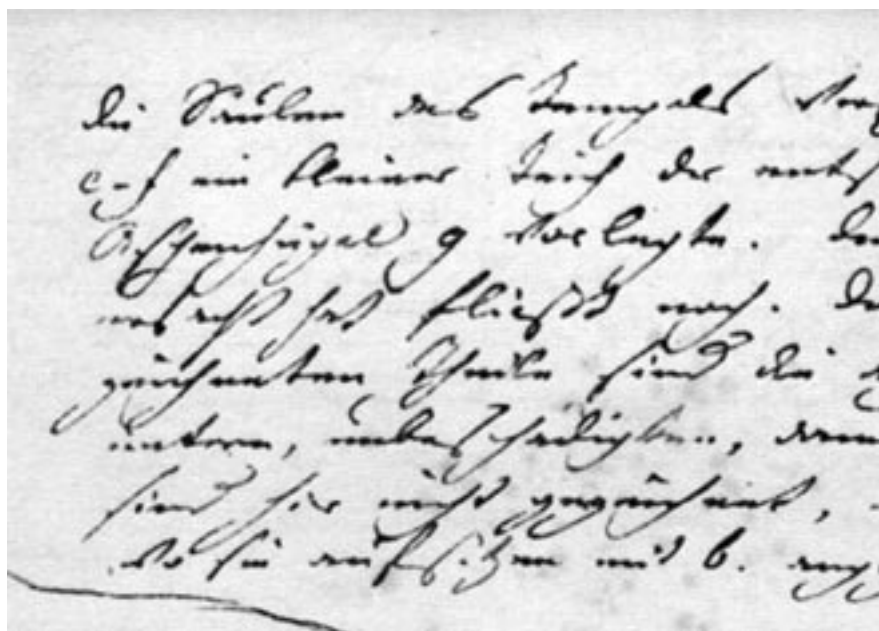 die Säulen des Tempels
c-f ein kleiner Teich der
Aschenhügel g vorlegte.
hat fließt noch.
gezeichneten Theile sind die
untern, unbeschädigten,
sind hier nicht gezeichnet,
wo sie aufsitzen mit b.